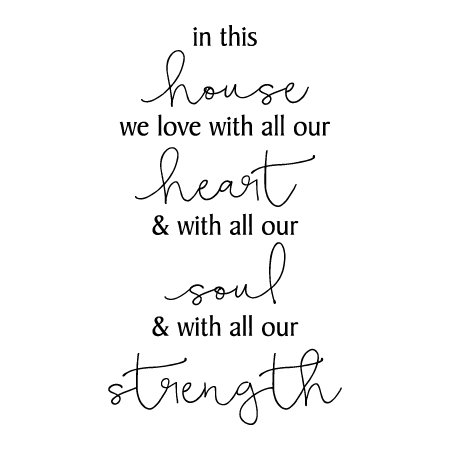 in this
house
we love with all our
heart
& with all our
soul
& with all our
strength